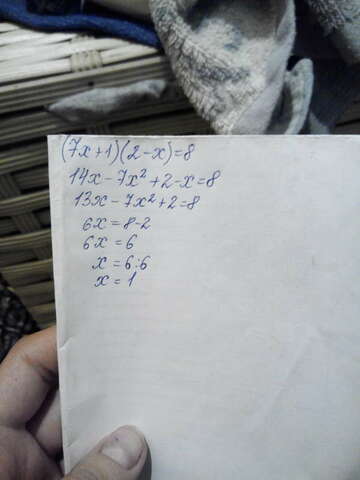 (7x+1)(2-x)=8
14x-7x²+2-x=8
13x-7x²+2=8
6x=8-2
6x=6
x=6:6
x=1